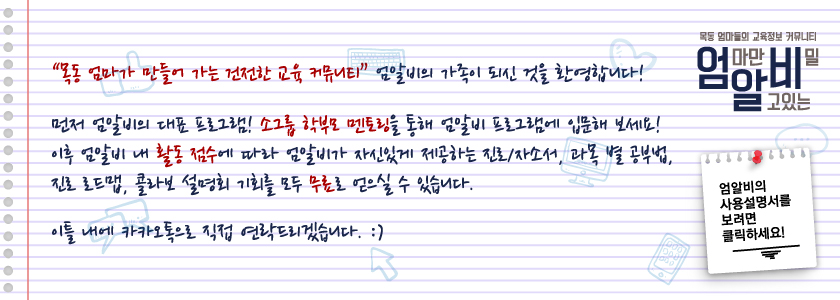 "목동 엄마가 만들어 가는 건전한 교육 커뮤니티" 엄알비의 가족이 되신 것을 환영합니다!
먼저 엄알비의 대표 프로그램! 소그룹 학부모 멘토링을 통해 엄알비 프로그램에 입문해 보세요!
이후 엄알비 내 활동 점수에 따라 엄알비가 자신있게 제공하는 진로/자소서, 과목 별 공부법,
진로 로드맵, 콜라보 설명회 기회를 모두 무료로 얻으실 수 있습니다.
이틀 내에 카카오톡으로 직접 연락드리겠습니다. :)
목동 엄마들의 교육정보 커뮤니티
엄마만
알고있는
비밀
엄알비의
사용설명서를
보려면
클릭하세요!
엄알비